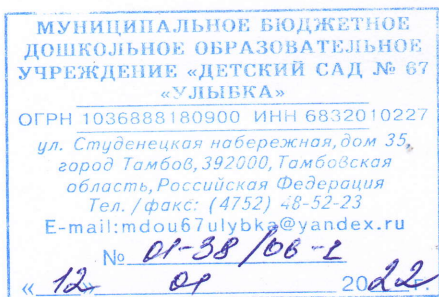 МУНИЦИПАЛЬНОЕ БЮДЖЕТНОЕ
ДОШКОЛЬНОЕ ОБРАЗОВАТЕЛЬНОЕ
УЧРЕЖДЕНИЕ «ДЕТСКИЙ САД № 67
«УЛЫБКА»
ОГРН 1036888180900 ИНН 6832010227
ул. Студенецкая набережная, дом 35,
город Тамбов, 392000, Тамбовская
область, Российская Федерация
Тел. / факс: (4752) 48-52-23
E-mail:mdou67ulybka@yandex.ru
№ 01-38/06-2
« 12» 01 2022г.